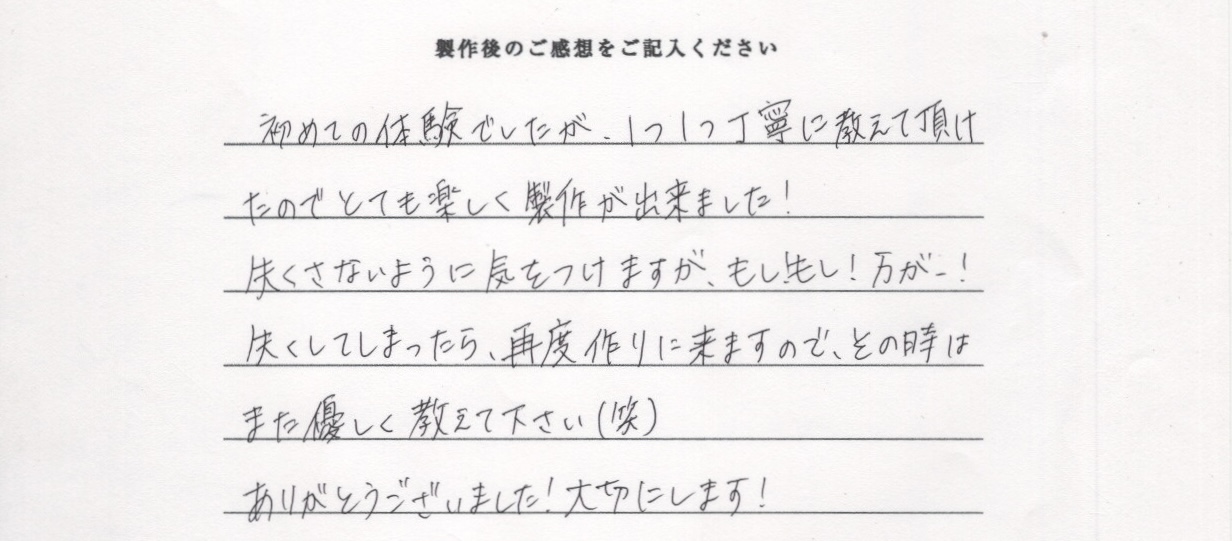 製作後のご感想をご記入ください
初めての体験でしたが、1つ1つ丁寧に教えて頂け
たのでとても楽しく製作が出来ました!
失くさないように気をつけますが、もしもし!万が一!
失くしてしまったら、再度作りに来ますので、その時は
また優しく教えて下さい(笑)
ありがとうございました!大切にします!